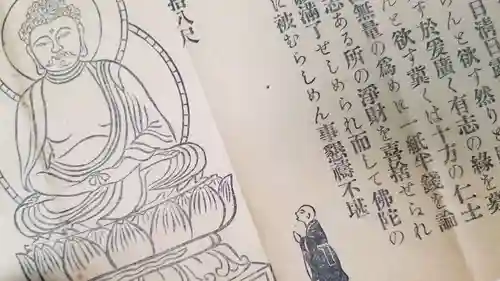 日清日露
らんと欲す然り
于於爰廣く有志の縁を募
んと欲す冀くは十方の仁士
無量の爲め一紙半錢を論
志ある所の淨財を喜捨せられ
願滿了ぜしめられ而して佛陀の
に被むらしめん事懇禱不堪
拾八尺